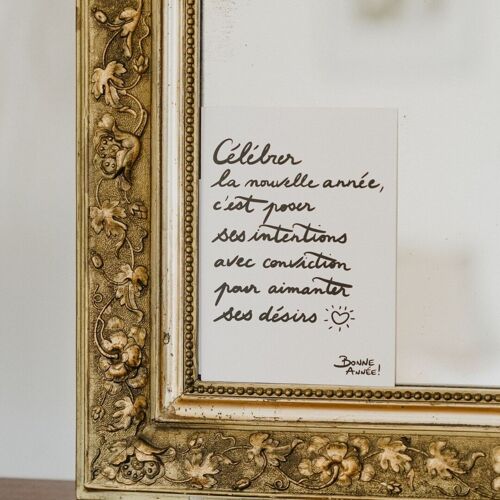 Célébrer
la nouvelle année,
c'est poser
ses intentions
avec conviction
pour aimanter
ses désirs
BONNE
ANNÉE!